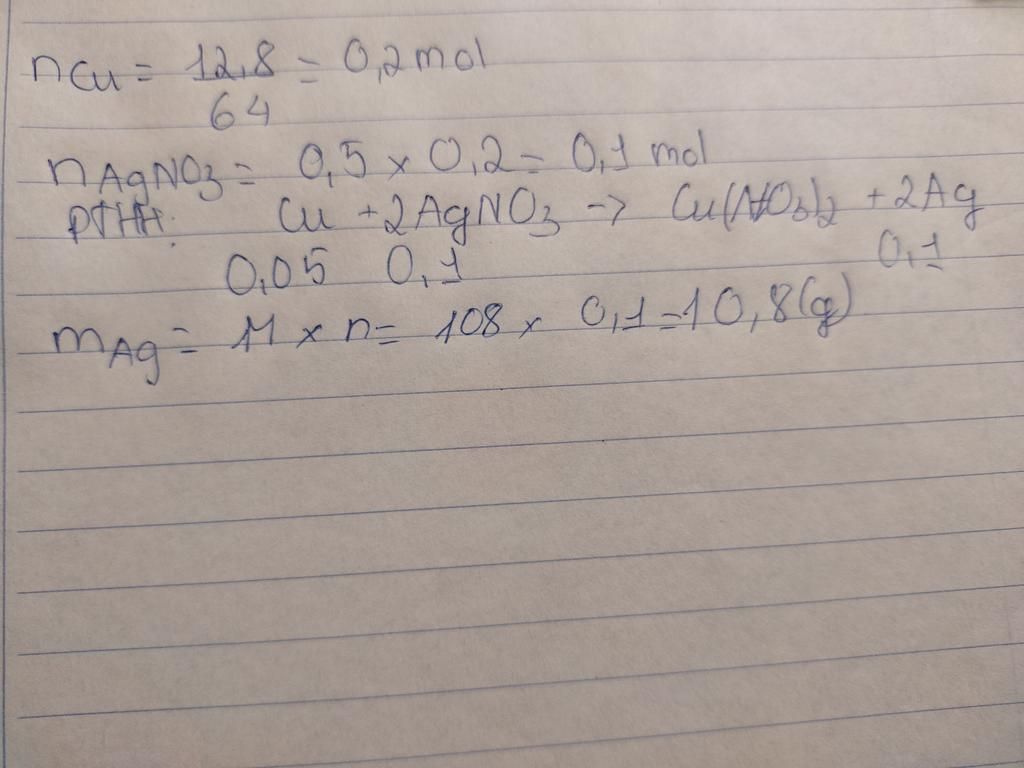 nCu = 12,8 = 0,2 mol
64
nAgNO3 = 0,5 x 0,2 = 0,1 mol
PTHH: Cu + 2AgNO3 -> Cu(NO3)2 + 2Ag
0,05 0,1 0,1
mAg = M x n = 108 x 0,1 = 10,8 (g)